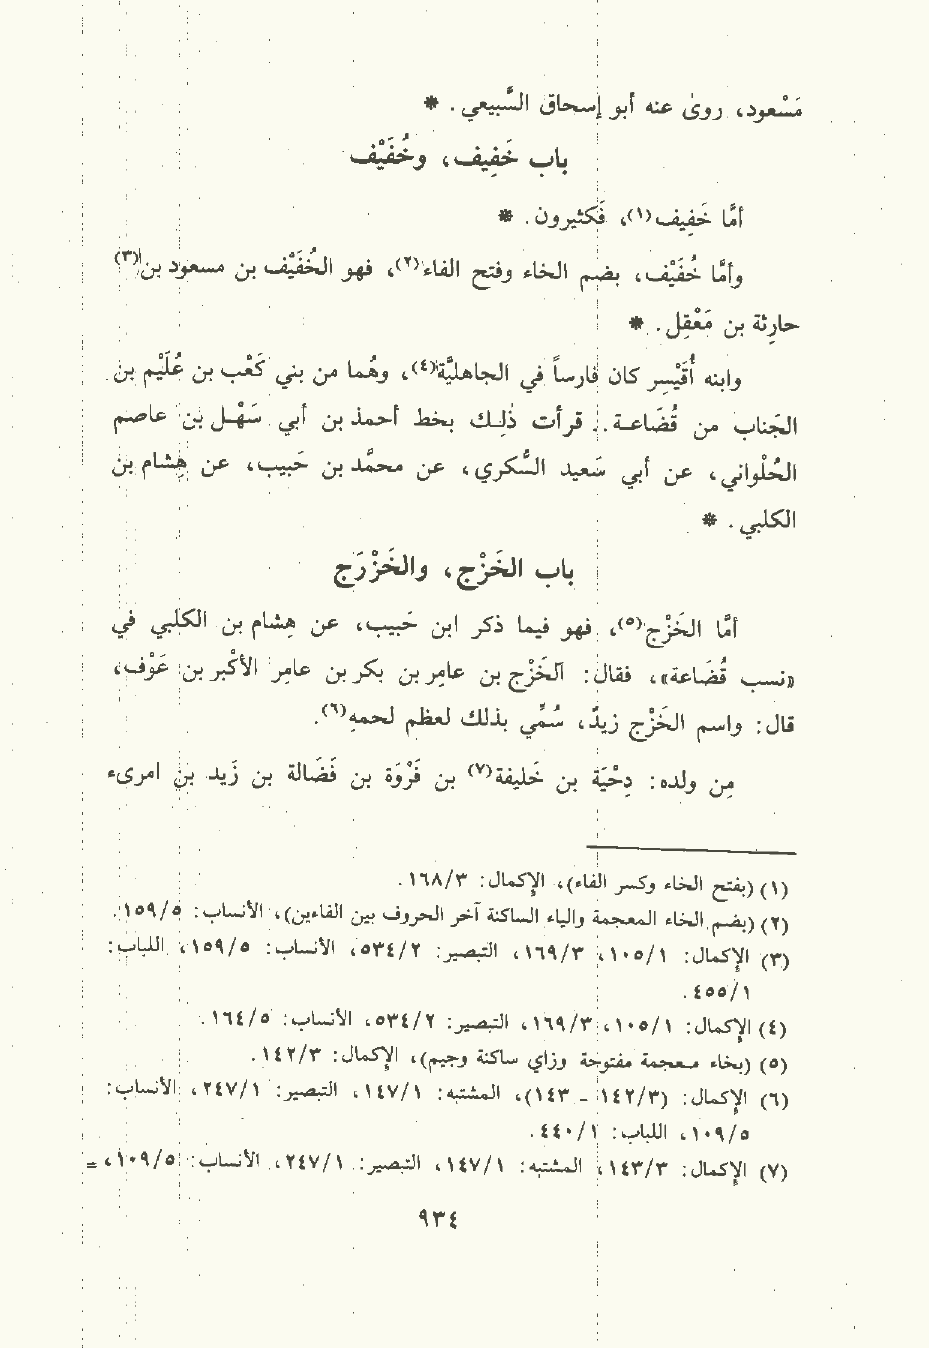 مَسْعود، روىٰ عنه أبو إسحاق السَّبيعي. *
باب خَفِيف، وخُفَيْف
أمَّا خَفِيف(١)، فَكثيرون. *
وأمَّا خُفَيْف، بضم الخاء وفتح الفاء(٢)، فهو الخُفَيْف بن مسعود بن(٣)
حارِثة بن مَعْقِل. *
وابنه أُقَيْسِر كان فارساً في الجاهليَّة(٤)، وهُما من بني كَعْب بن عُلَيْم بن
الجَناب من قُضَاعـة.. قرأت ذٰلِـك بخط أحمد بن أبي سَهْـل بن عاصم
الحُلْواني، عن أبي سَعيد السُّكري، عن محمَّد بن حَبيب، عن هِشام بن
الكلبي. *
باب الخَزْج، والخَزْرَج
أمَّا الخَزْج(٥)، فهو فيما ذكر ابن حَبيب، عن هِشام بن الكلبي في
«نسب قُضَاعة»، فقال: الخَزْج بن عامِر بن بكر بن عامِر الأكْبر بن عَوْف،
قال: واسم الخَزْج زيدٌ، سُمِّي بذلك لعظم لحمهِ(٦).
مِن ولده: دِحْيَة بن خَليفة(٧) بن فَرْوَة بن فَضَالة بن زَيد بن امرىء
(١) (بفتح الخاء وكسر الفاء)، الإكمال: ١٦٨/٣.
(٢) (بضم الخاء المعجمة والياء الساكنة آخر الحروف بين الفاءين)، الأنساب: ١٥٩/٥.
(٣) الإكمال: ١٠٥/١، ١٦٩/٣، التبصير: ٥٣٤/٢، الأنساب: ١٥٩/٥، اللباب:
٤٥٥/١.
(٤) الإكمال: ١٠٥/١، ١٦٩/٣، التبصير: ٥٣٤/٢، الأنساب: ١٦٤/٥.
(٥) (بخاء معجمة مفتوحة وزاي ساكنة وجيم)، الإكمال: ١٤٢/٣.
(٦) الإكمال: (١٤٢/٣ ـ ١٤٣)، المشتبه: ١٤٧/١، التبصير: ٢٤٧/١، الأنساب:
١٠٩/٥، اللباب: ٤٤٠/١.
(٧) الإكمال: ١٤٣/٣، المشتبه: ١٤٧/١، التبصير: ٢٤٧/١، الأنساب: ١٠٩/٥، =
٩٣٤